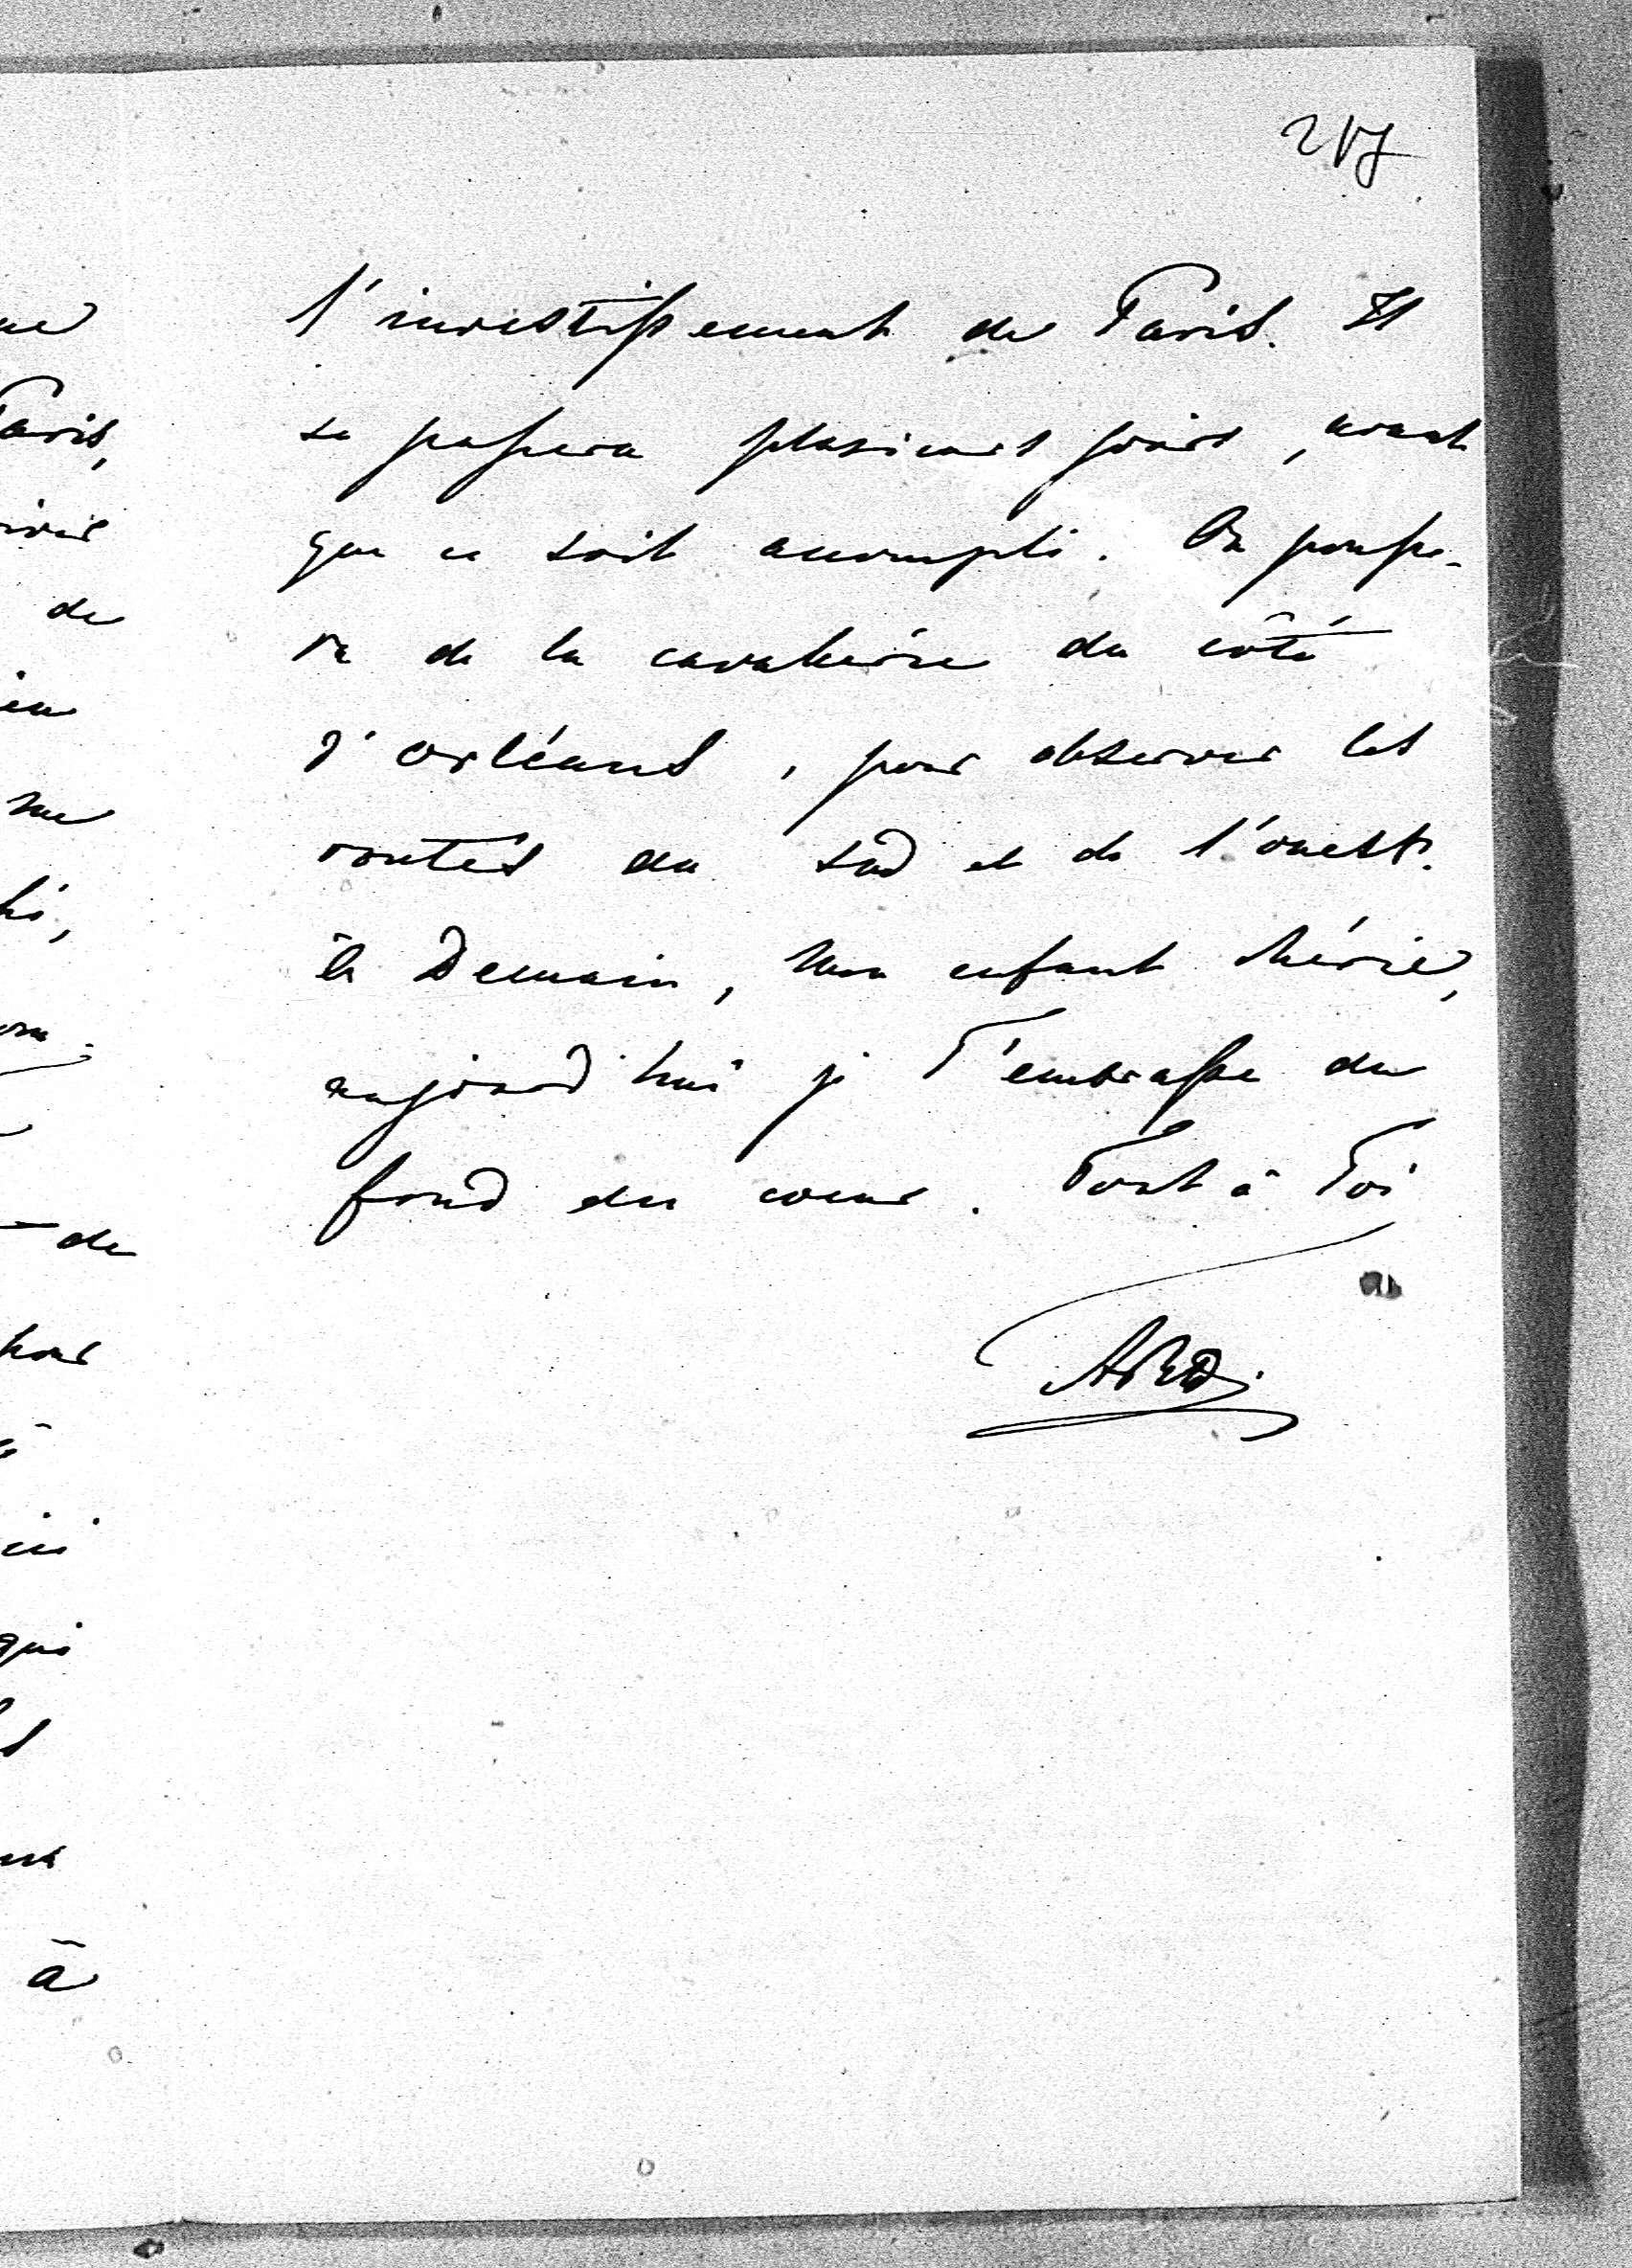 217
l'investissement de Paris. Il
se passera plusieurs jours, avant
que ce soit accompli. On pousse-
ra de la cavalerie du côté
d'orléans, pour observer les
routes du sud et de l'ouest.
à Demain, mon enfant chérie,
aujourd'hui je T'embrasse du
fond du coeur. Tout à Toi
Paris,
de
qui
à